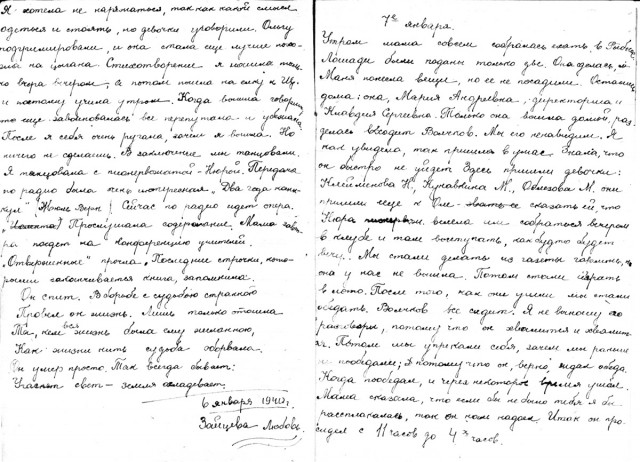 Я хотела не наряжаться, так как какой смысл
одеться и стоять, но девочки уговорили. Ольгу
подгримировали, и она стала еще лучше похо-
жа на цыгана. Стихотворение я
вчера вечером, а потом пошла на елку к
и поэтому учила утром. Когда вышла говорить
то еще все перепутала и
После я себя очень ругала, зачем я вышла. Но
ничего не сделаешь. В заключение мы танцевали.
Я танцевала с пионервожатой Нюрой. Передача
по радио была очень интересная. "Два года кани-
кул" Жюль Верн! Сейчас по радио идет опера.
Прослушала содержание. Мама завт-
ра поедет на конференцию учителей.
"Отверженные" прочла. Последние строчки, кото-
рыми заканчивается книга, запомнила.
Он спит. В борьбе с судьбою странной
Провел он жизнь. Лишь только отошла
Та, кем вся жизнь была ему желанною,
Как жизни нить судьба оборвала.
Он умер просто. Так всегда бывает:
Угаснет свет – земля овладевает.
6 января 1941 г.
Зайцева Любовь.
7ое января.
Утром мама совсем собралась ехать в
Лошади были поданы только две. Она делась,
Маня понесла вещи, но ее не посадили. Остались
дома: она, Мария Андреевна, директориса и
Клавдия Сергеевна. Только она вошла домой, раз-
делась входит Волчков. Мы его ненавидим. Я
как увидела, так пришла в ужас. Знала, что
он быстро не уйдет. Здесь пришли девочки:
Клейменова Н, Кунавкина М, М. они
пришли еще к Оле сказать ей, что
Нюра велела им собраться вечером
в клубе и там выступать, как будто будет
вечер. Мы стали делать из газеты
она у нас не вышла. Потом стали играть
в лото. После того, как они ушли мы стали
обедать. Волчков все сидет. Я не выношу его
разговоры, потому что он хвалится и хвалит-
ся. Потом мы упрекали себя, зачем мы раньше
не пообедали; потому что он, верно, ждал обеда.
Когда пообедал, и через некоторое время ушел.
Мама сказала, что если бы не было тебя я бы
расплакалась, так он нам надоел. Итак он про-
сидел с 11 часов до 4х часов.